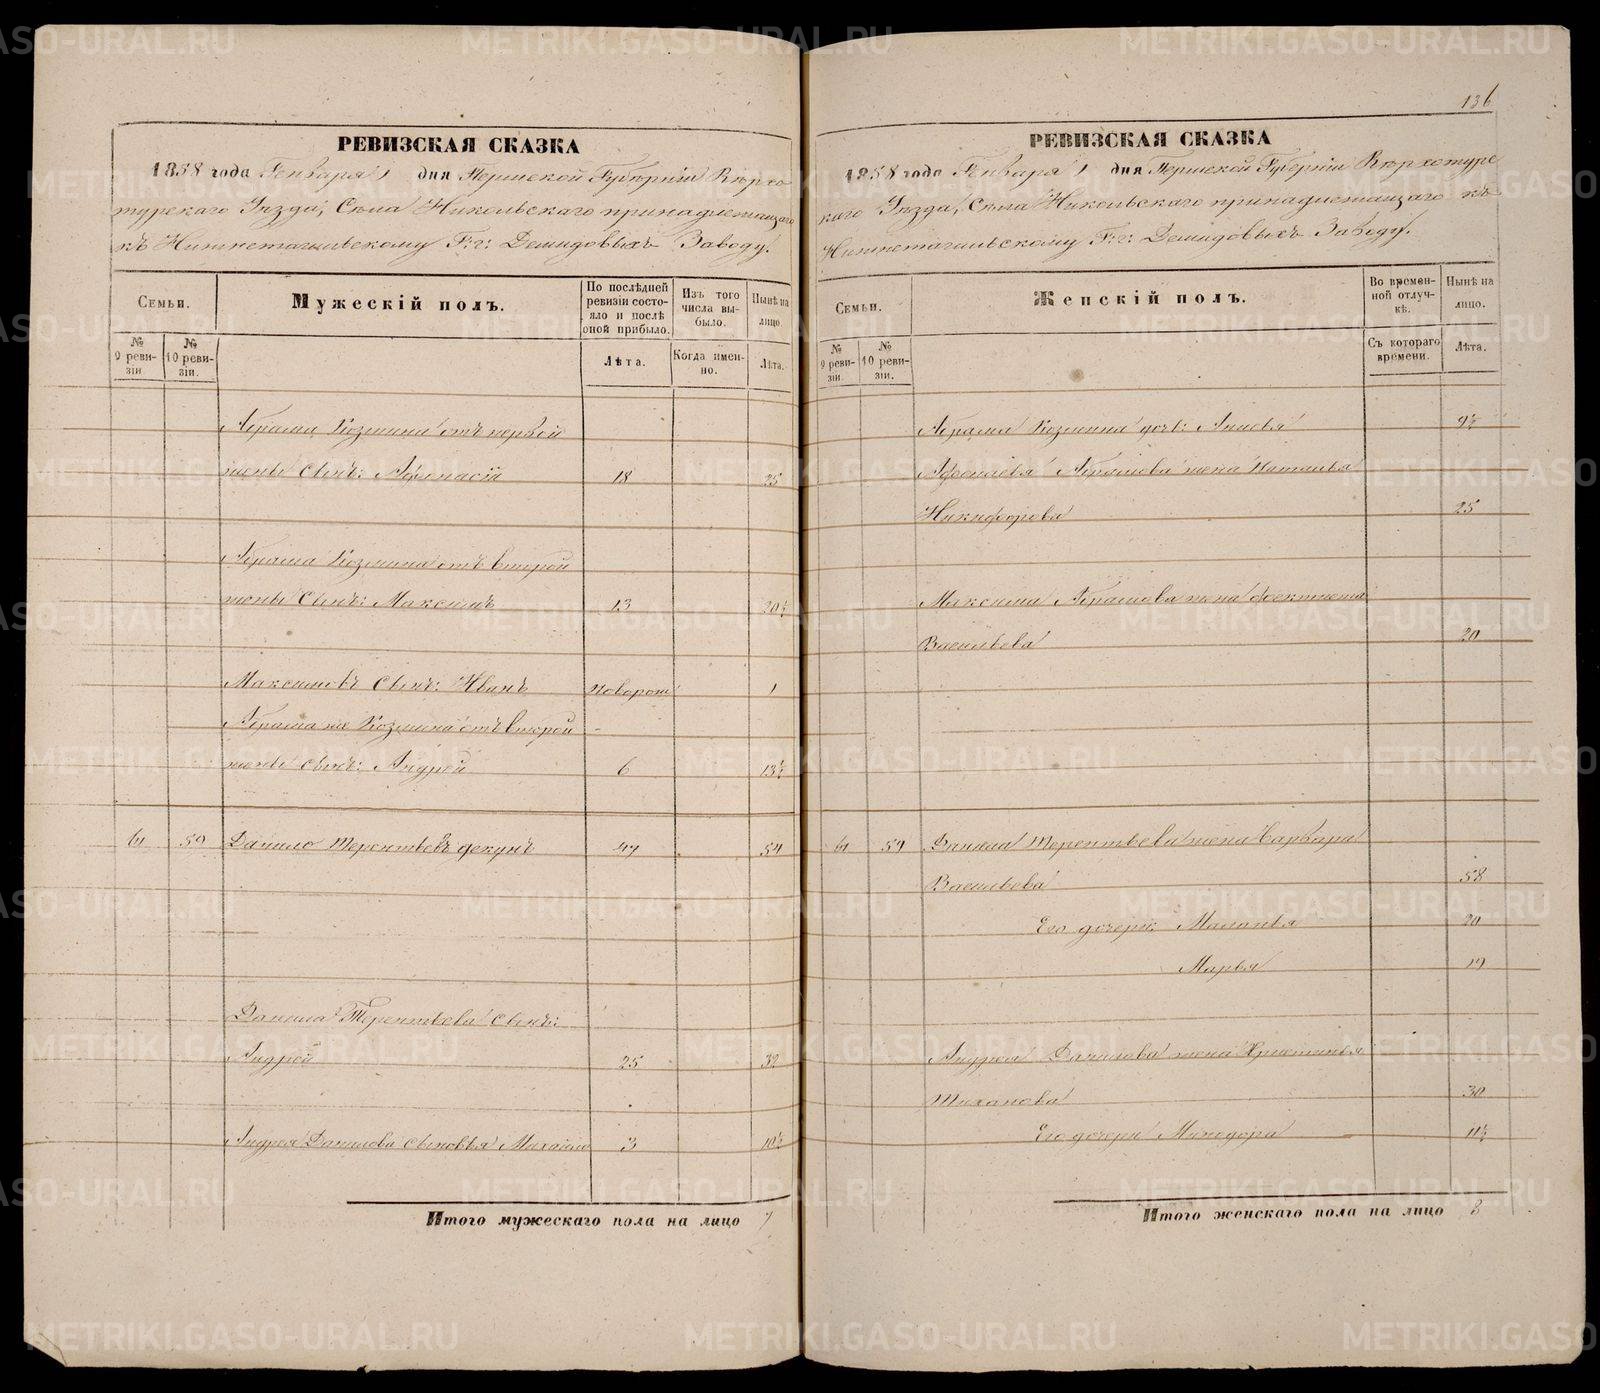 РЕВИЗСКАЯ СКАЗКА
1858 года Генваря 1 дня Пермской Губерніи Верхо
турскаго Уѣзда, Села Никольскаго принадлежащаго
къ Нижнетагильскому Г:г: Демидовыхъ Заводу.
Семьи.
Мужескій полъ.
По послѣдней ревизіи состояло и послѣ оной прибыло.
Изъ того числа выбыло.
Нынѣ на лицо.
№ 9 ревизіи.
№ 10 ревизіи.
Лѣта.
Когда именно.
Лѣта.
Абрама Козмина отъ первой
жены Сынъ: Афонасій 18 25
Абрама Козмина отъ второй
жены Сынъ: Максимъ 13 20½
Максимовъ Сынъ: Иванъ новорож 1
Абрама же Козмина отъ второй
жены сынъ: Андрей 6 13½
61 59 Данило Терентьевъ 47 54
Данила Терентьева Сынъ:
Андрей 25 32
Андрея Данилова сыновья Михайло 3 10½
Итого мужескаго пола на лицо 7
136
РЕВИЗСКАЯ СКАЗКА
1858 года Генваря 1 дня Пермской Губерніи Верхотурс
каго Уѣзда, Села Никольскаго принадлежащаго къ
Нижнетагильскому Г:г: Демидовыхъ Заводу.
Семьи.
Женскій полъ.
Во временной отлучкѣ.
Нынѣ на лицо.
№ 9 ревизіи.
№ 10 ревизіи.
Съ котораго времени.
Лѣта.
Абрама Козмина дочь: Анисья 9½
Афонасья Абрамова жена Наталья
Никифорова 25
Максима Абрамова жена Фектиста
Васильева 20
61 59 Данила Терентьева жена Варвара
Васильева 58
Его дочери: Маланья 20
Марья 19
Андрея Данилова жена Христинья
30
Его дочери Миходора 11½
Итого женскаго пола на лицо 8
METRIKI.GASO-URAL.RU